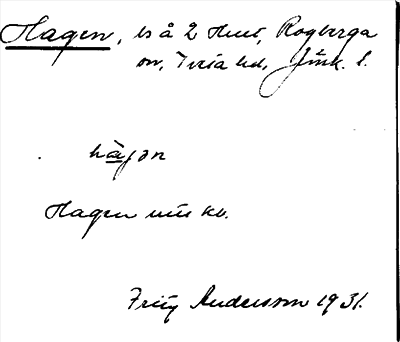 Hagen, ts å 2 Hult, Rogberga
sn, Tveta hd, Jönk. l.
hàgən
Hagen uttr kv.
Fritz Andersson 1931.